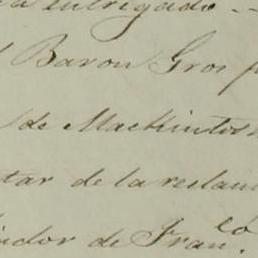 entregado
Baron Gros
de Mackintos
tar de la reclam
dor de Fran.co